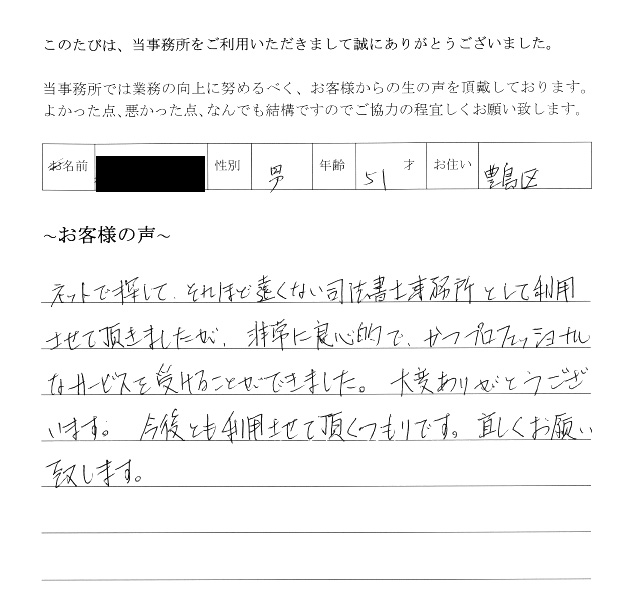 このたびは、当事務所をご利用いただきまして誠にありがとうございました。
当事務所では業務の向上に努めるべく、お客様からの生の声を頂戴しております。
よかった点、悪かった点、なんでも結構ですのでご協力の程宜しくお願い致します。
お名前 性別 男 年齢 51 才 お住い 豊島区
~お客様の声~
ネットで探して、それほど遠くない司法書士事務所として利用
させて頂きましたが、非常に良心的で、かつプロフェッショナル
なサービスを受けることができました。大変ありがとうござ
います。今後とも利用させて頂くつもりです。宜しくお願い
致します。